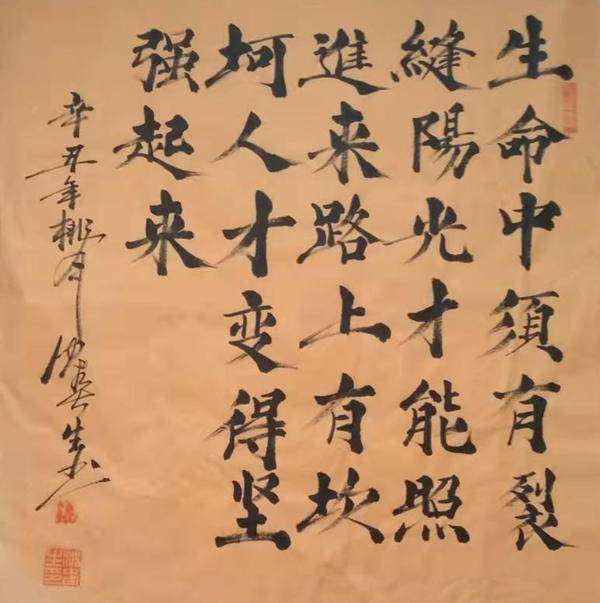 生命中须有裂
縫陽光才能照
進来路上有坎
坷人才变得坚
强起来
辛丑年桃月